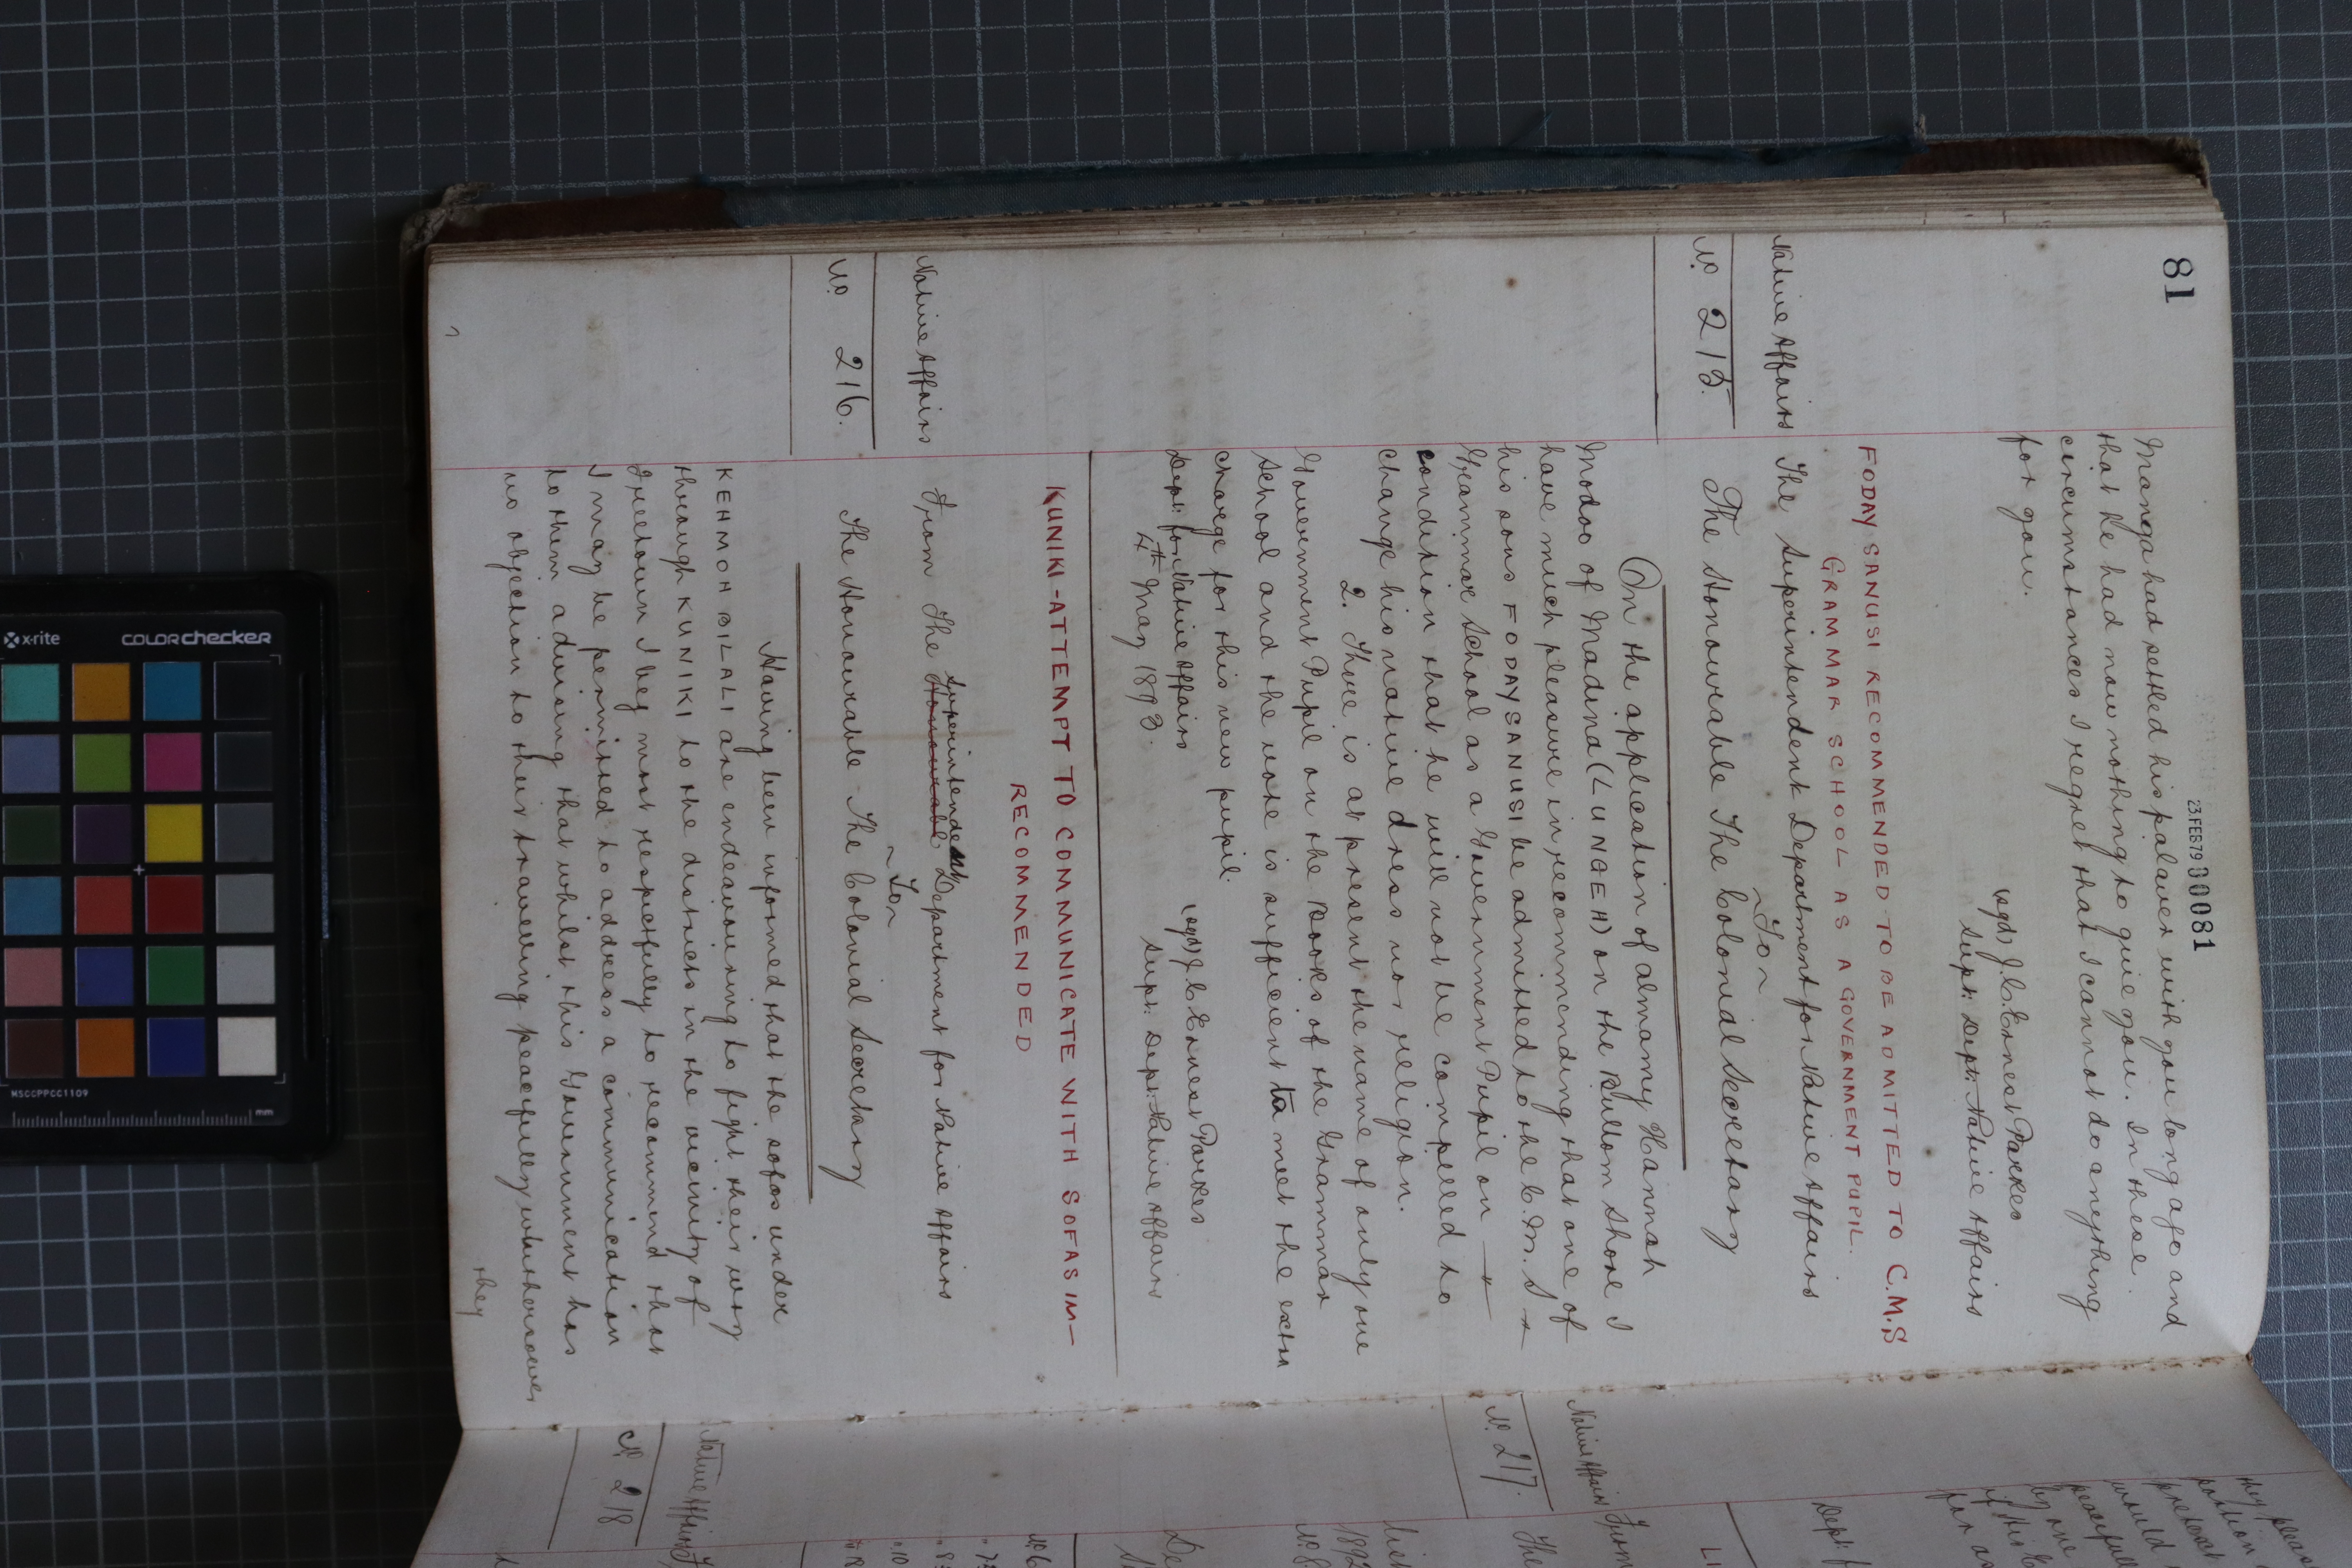 81
23 FEB 79 30081
Manga had settled his palaver with you long ago and
that he had now nothing to give you. In these
circumstances I regret that I cannot do anything
for you.
(sgd) J. C. Ernest Parkes
Supt: Dept: Native Affairs
FODAY SANUSI RECOMMENDED TO BE ADMITTED TO C.M.S
GRAMMAR SCHOOL AS A GOVERNMENT PUPIL.
Native Affairs The Superintendent Department for Native Affairs
~To~
No 215. The Honourable The Colonial Secretary
On the application of Almamy Hannah
Modoo of Madina (LUNGEH) on the Bullom Shore I
have much pleasure in recommending that one of
his sons FODAY SANUSI be admitted to the C. M. S
Grammar School as a Government Pupil on
condition that he will not be compelled to
change his native dress nor religion.
2. There is at present the name of only one
Government Pupil on the Books of the Grammar
School and the vote is sufficient to meet the extra
charge for this new pupil.
(sgd) J C Ernest Parkes
Dept: for Native Affairs
Supt: Dept: Native Affairs
4th May 1893.
KUNIKI-ATTEMPT TO COMMUNICATE WITH SOFAS IN-
RECOMMENDED
Superintendent
Native Affairs From The Honourable Department for Native Affairs
~To~
No 216. The Honourable The Colonial Secretary
Having been informed that the sofas under
KEHMOH BILALI are endeavouring to fight their way
through KUNIKI to the districts in the vicinity of
Freetown I beg most respectfully to recommend that
I may be permitted to address a communication
to them advising that whilst this Government has
no objection to their travelling peacefully whithersoever
they
they pea
position
pretext
would
peacefull
by one
if His E
for an
Dept: f
LI
Native Affairs From
No. 217. The
1892
No. 8
De
No. 6
" 7
" 8
" 10
Native Affairs
No. 218
x-rite
colorchecker
MSCCPPCC1109
mm